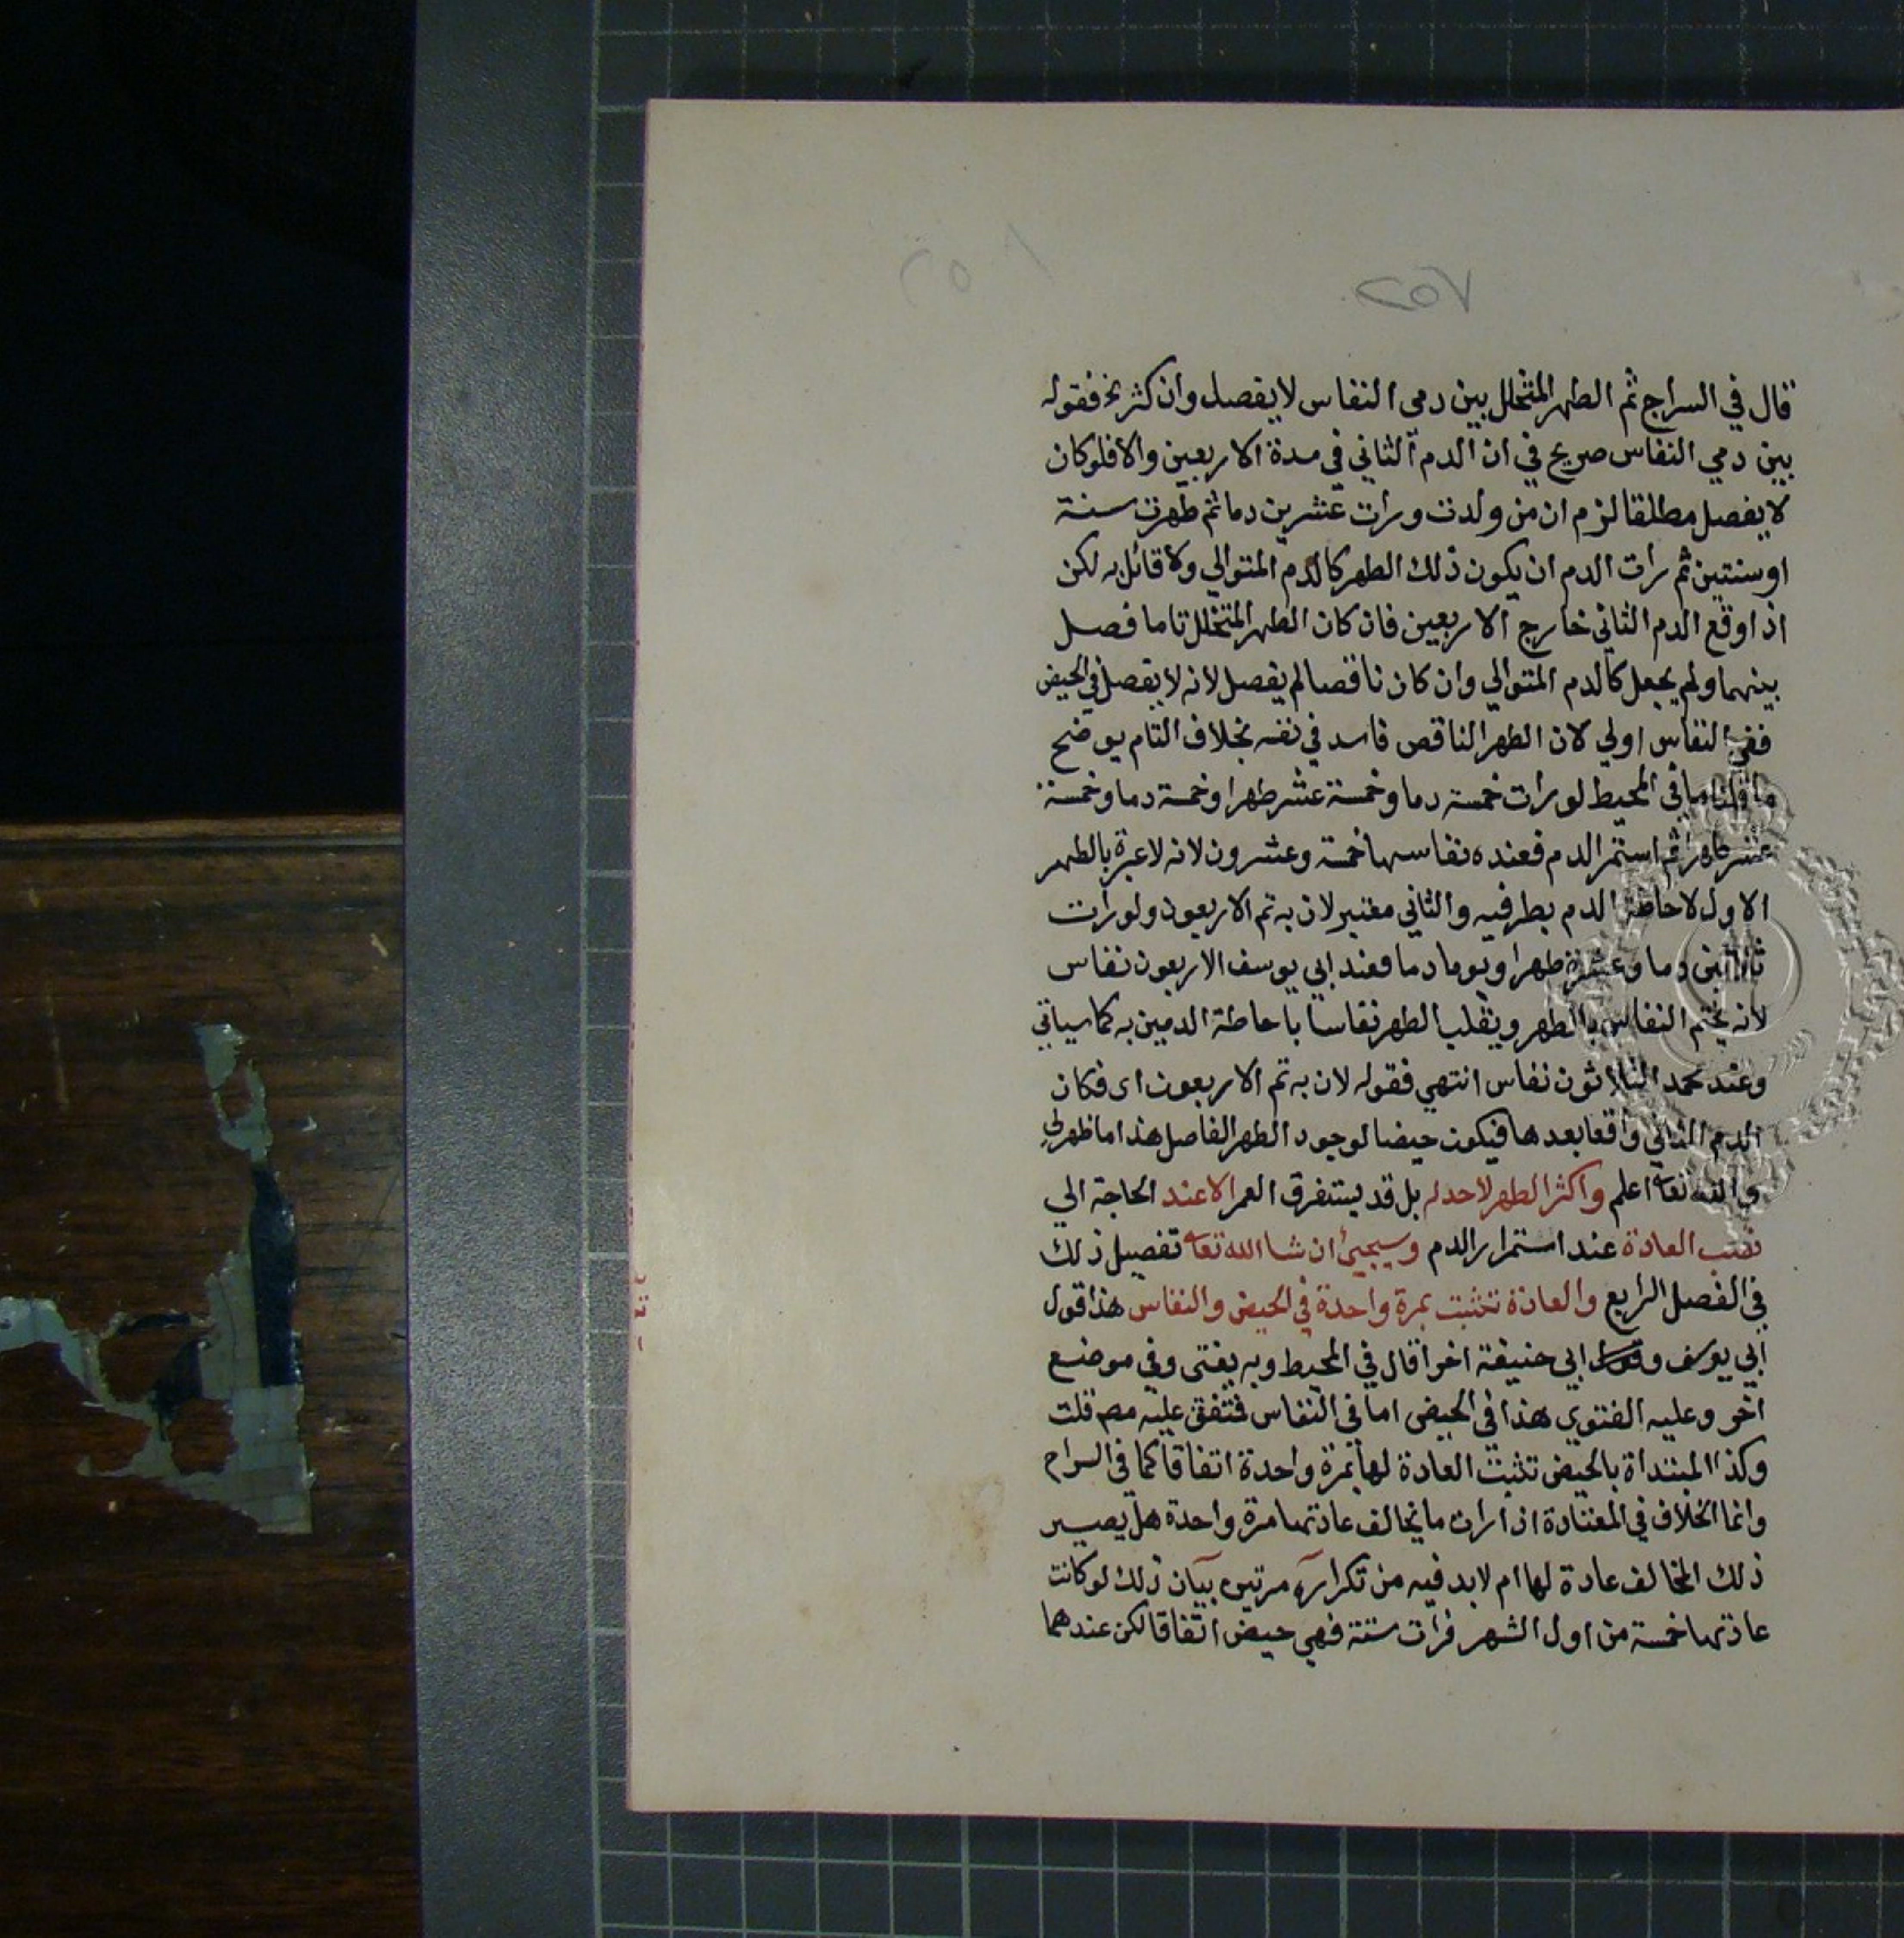 ٢٥٧
قال في السراج ثم الطهر المتخلل بين دمي النفاس لا يفصل وان كثر نحو فقوله
بين دمي النفاس صريح في ان الدم الثاني في مدة الاربعين والا فلو كان
لا يفصل مطلقا لزم ان من ولدت ورات عشرين دما ثم طهرت سنة
او سنتين ثم رات الدم ان يكون ذلك الطهر كالدم المتوالي ولا قائل به لكن
اذا وقع الدم الثاني خارج الاربعين فان كان الطهر المتخلل تاما فصل
بينهما ولم يجعل كالدم المتوالي وان كان ناقصا لم يفصل لانه لا يفصل في الحيض
ففي النفاس اولي لان الطهر الناقص فاسد في نفسه بخلاف التام يوضح
ما قلنا ما في المحيط لو رات خمسة دما وخمسة عشر طهرا وخمسة دما وخمسة
عشر طهرا ثم استمر الدم فعنده نفاسها خمسة وعشرون لانه لا عبرة بالطهر
الاول لاحاطة الدم بطرفيه والثاني معتبر لان به تم الاربعون ولو رات
ثلاثين دما وعشرة طهرا ويوما دما فعند ابي يوسف الاربعون نفاس
لانه يختم النفاس بالطهر ويقلب الطهر نفاسا باحاطة الدمين به كما سياتي
وعند محمد الثلاثون نفاس انتهي فقوله لان به تم الاربعون اى فكان
الدم الثاني واقعا بعدها فيكون حيضا لوجود الطهر الفاصل هذا ما ظهر لي
والله تعا اعلم واكثر الطهر لاحد له بل قد يستغرق العمر الا عند الحاجة الي
نصب العادة عند استمرار الدم وسيجيئ ان شا الله تعا تفصيل ذلك
في الفصل الرابع والعادة تثبت بمرة واحدة في الحيض والنفاس هذا قول
ابي يوسف وقول ابي حنيفة اخرا قال في المحيط وبه يفتى وفي موضع
اخر وعليه الفتوي هذا في الحيض اما في النفاس فمتفق عليه مص قلت
وكذا المبتداة بالحيض تثبت العادة لها بمرة واحدة اتفاقا كما في السراج
وانما الخلاف في المعتادة اذا رات ما يخالف عادتها مرة واحدة هل يصير
ذلك المخالف عادة لها ام لابد فيه من تكراره مرتين بيان ذلك لو كانت
عادتها خمسة من اول الشهر فرات ستة فهي حيض اتفاقا لكن عندهما